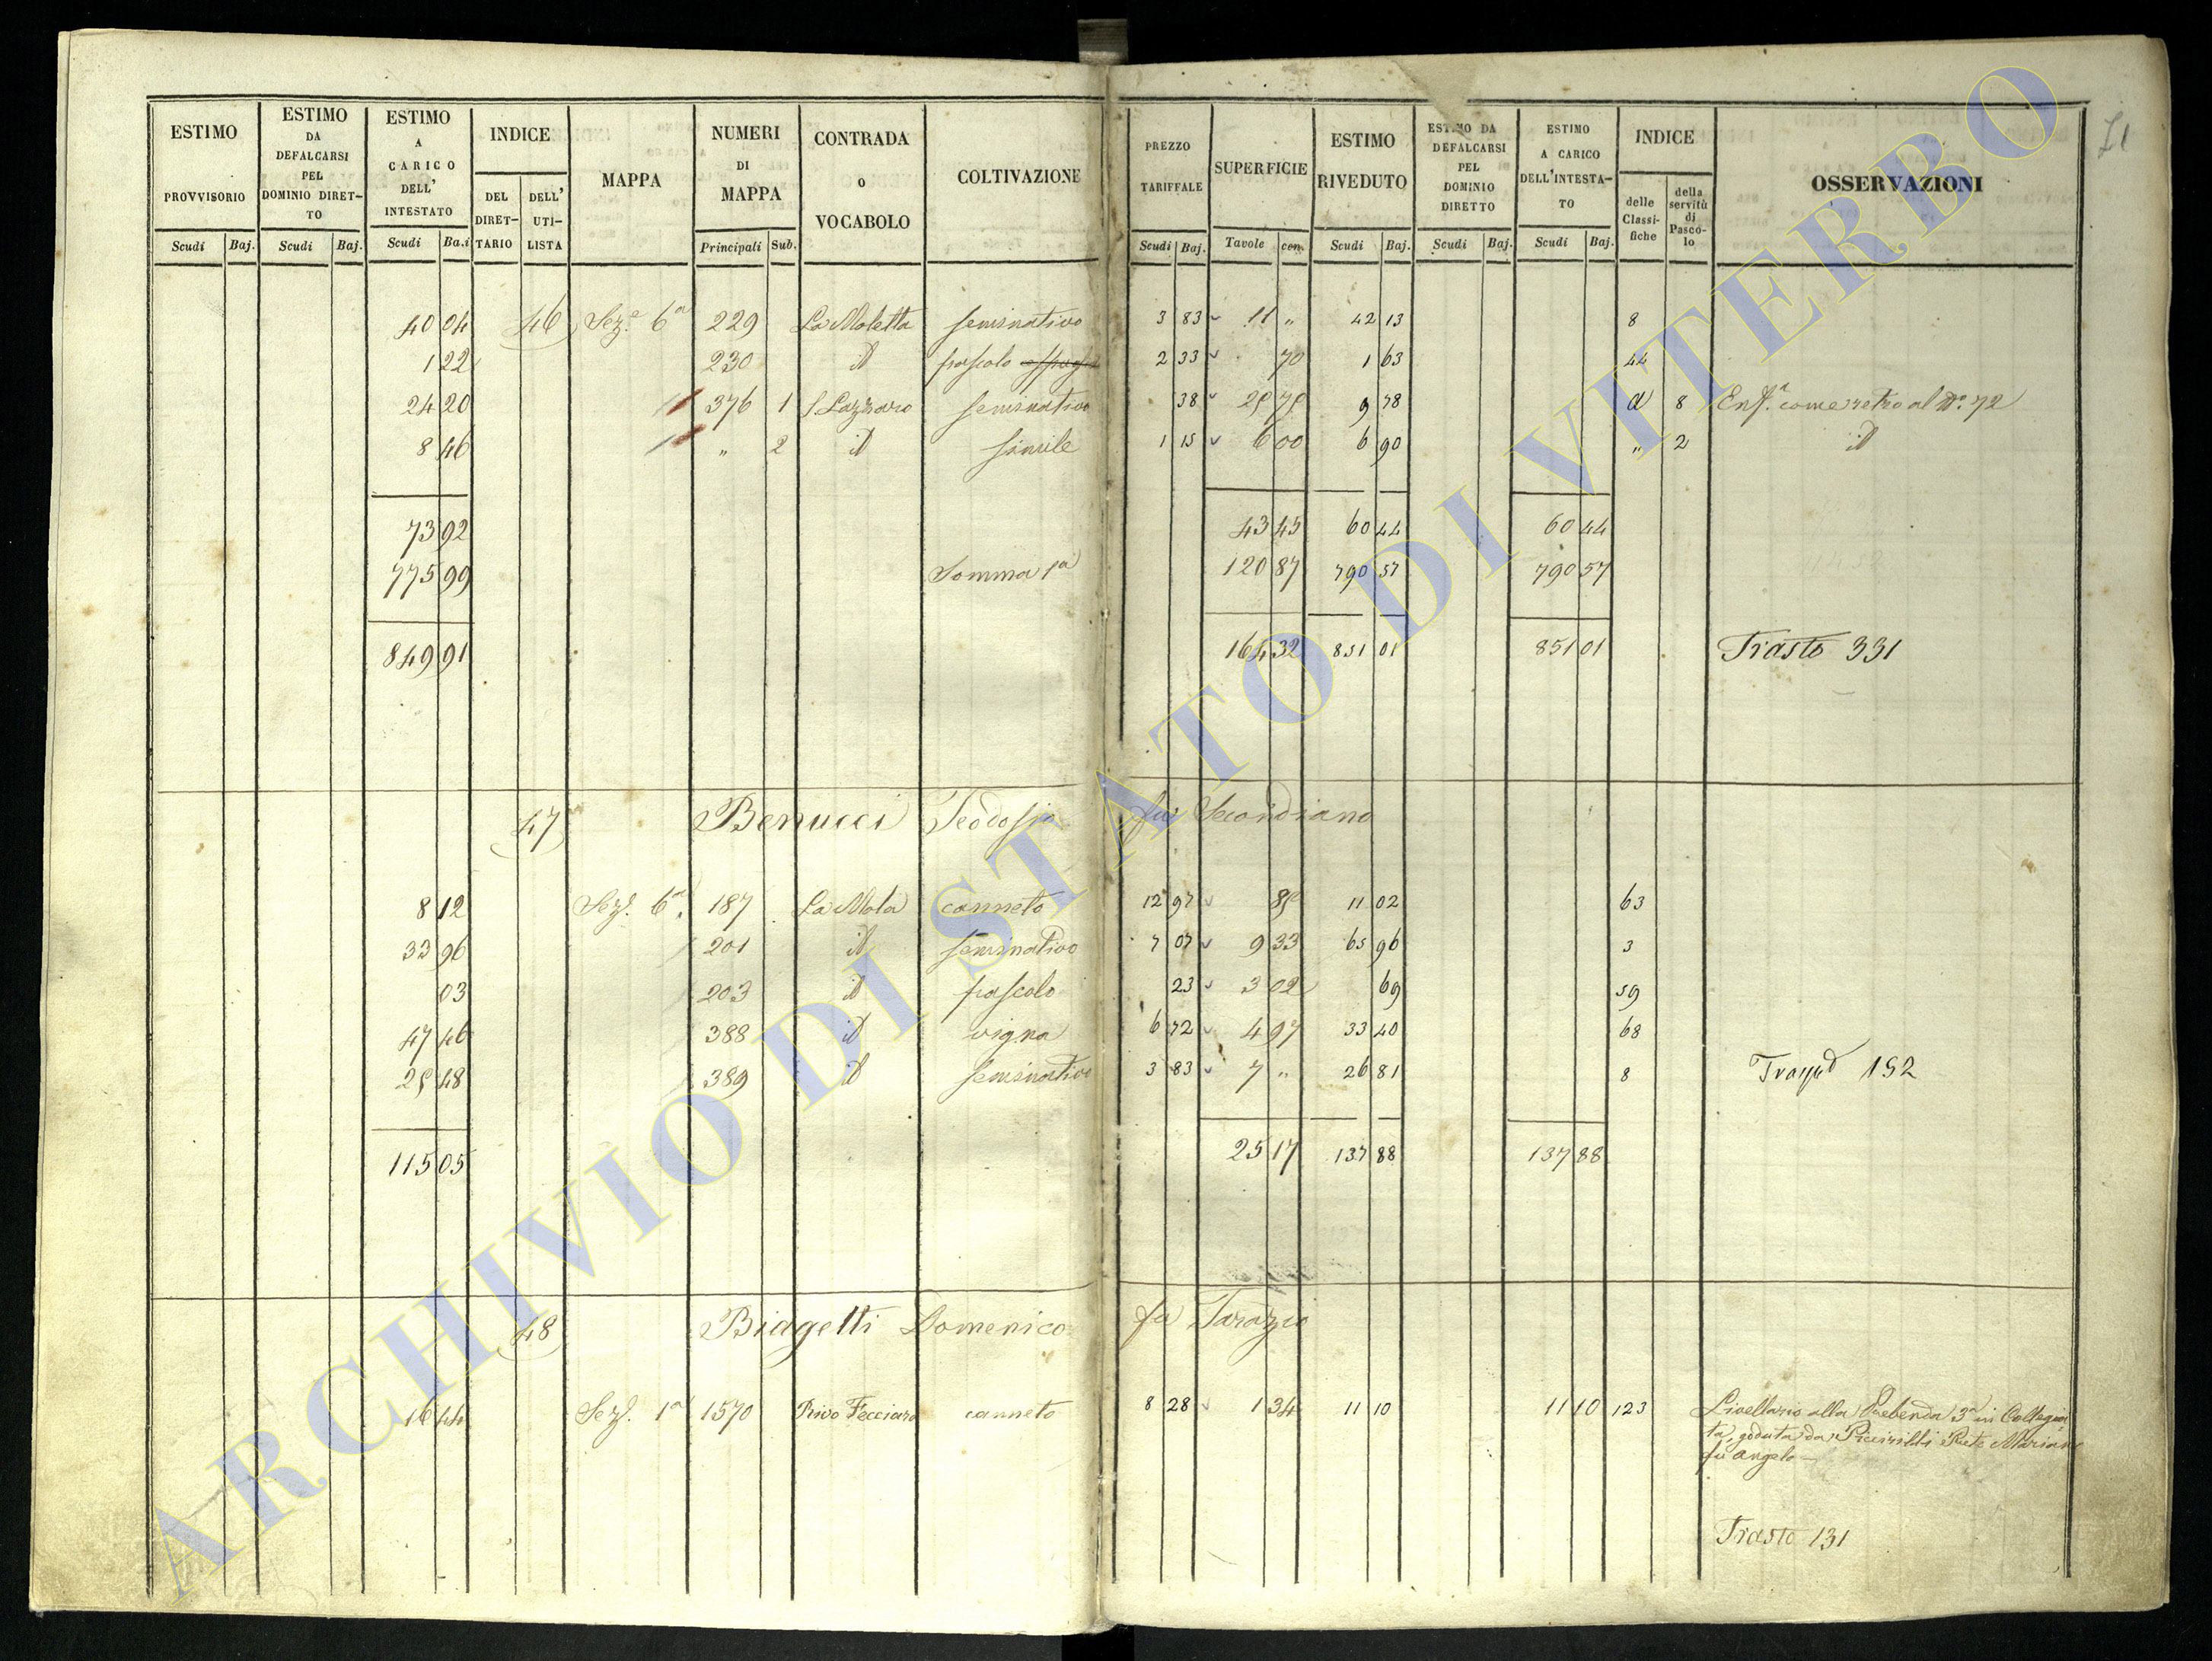 71
ESTIMO PROVVISORIO Scudi Baj.
ESTIMO DA DEFALCARSI PEL DOMINIO DIRETTO Scudi Baj.
ESTIMO A CARICO DELL' INTESTATO Scudi Baj.
INDICE DEL DIRETTARIO DELL' UTILISTA
MAPPA
NUMERI DI MAPPA Principali Sub.
CONTRADA o VOCABOLO
COLTIVAZIONE
PREZZO TARIFFALE Scudi Baj.
SUPERFICIE Tavole cen.
ESTIMO RIVEDUTO Scudi Baj.
ESTIMO DA DEFALCARSI PEL DOMINIO DIRETTO Scudi Baj.
ESTIMO A CARICO DELL'INTESTATO Scudi Baj.
INDICE delle Classifiche della servitù di Pascolo
OSSERVAZIONI
40 04 46 Sez.e 6a 229 La Moletta seminativo 3 83 11 " 42 13 8
1 22 230 id pascolo 2 33 70 1 63 44
24 20 376 1 S. Lazzaro seminativo 38 25 75 9 78 d 8 Enf.a come retro al No. 72
8 46 " 2 id simile 1 15 6 00 6 90 " 2 id
73 92 43 45 60 44 60 44
775 99 Somma 1a 120 87 790 57 790 57
849 91 164 32 851 01 851 01 Trasto 331
47 Benucci Teodosio fu Secondiano
8 12 Sez. 6a 187 La Mola canneto 12 97 85 11 02 63
33 96 201 id seminativo 7 07 9 33 65 96 3
03 203 id pascolo 23 3 02 69 59
47 46 388 id vigna 6 72 4 97 33 40 68
25 48 389 id seminativo 3 83 7 " 26 81 8 152
115 05 25 17 137 88 137 88
48 Biagetti Domenico fu
16 44 Sez. 1a 1570 Rivo Fecciaro canneto 8 28 1 34 11 10 11 10 123 Livellario alla Prebenda 3a in Collegia
ta, goduta da Piccirilli Prete Mariano
fu Angelo —
Trasto 131
ARCHIVIO DI STATO DI VITERBO